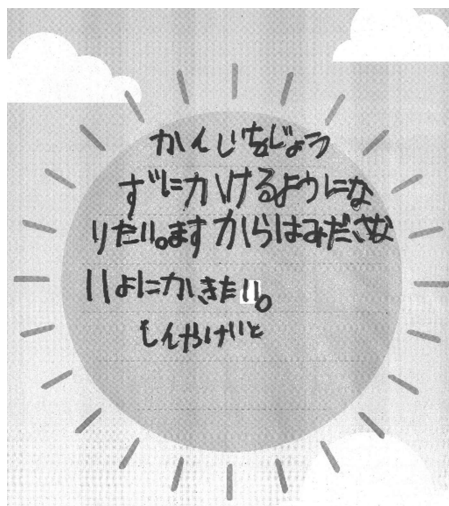 かんじをじょう
ずにかけるようにな
りたい。ますからはみださな
いよにかきたい。
もんやけいと